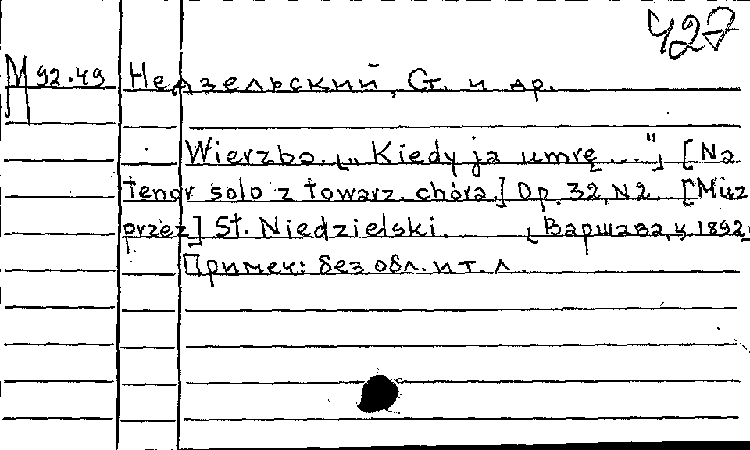 427
М 92.49 Недзельский, Ст. и др.
Wierzbo. [„Kiedy ja umrę..."] [Na
tenor solo z towarz. chóra.] Op. 32, N 2. [Muz
przez] St. Niedzielski. [Варшава, ц. 1892
Примеч: без обл. и т. л